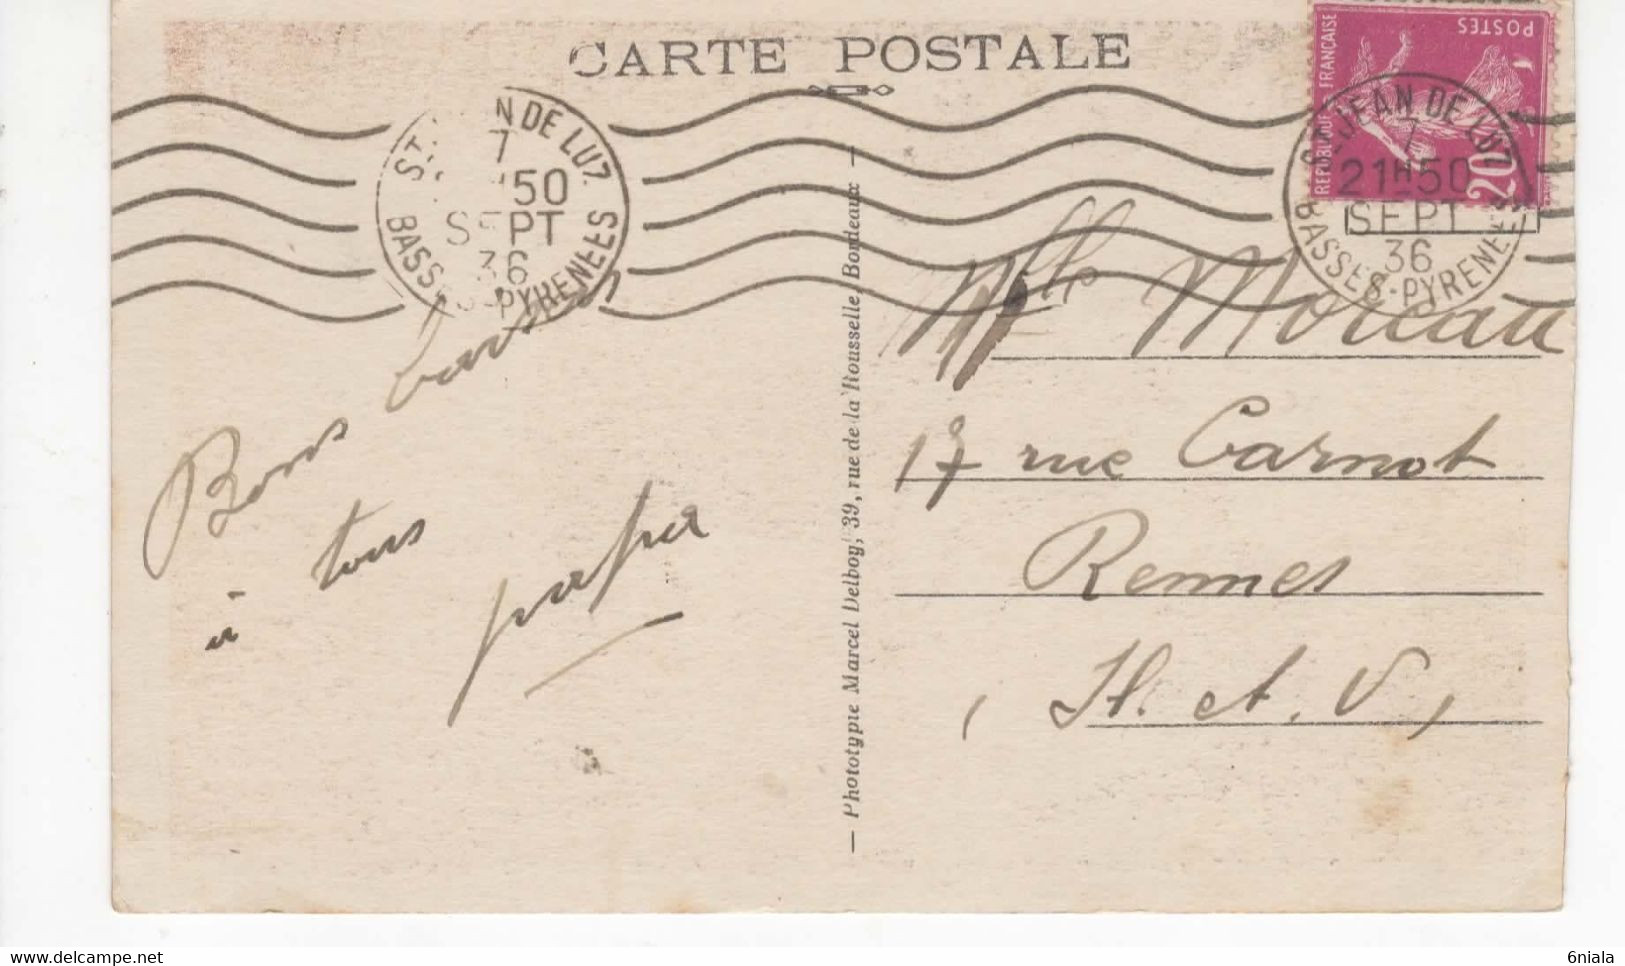 CARTE POSTALE
RÉPUBLIQUE FRANÇAISE
POSTES
20
ST-JEAN DE LUZ
7
21H50
SEPT
36
BASSES-PYRENEES
DE LUZ
7
50
SEPT
36
BASSES-PYRENEES
Bons baisers
à tous
papa
— Phototypie Marcel Delboy, 39, rue de la Rousselle, Bordeaux —
Mlle Moreau
17 rue Carnot
Rennes
(I. et V)
6niala